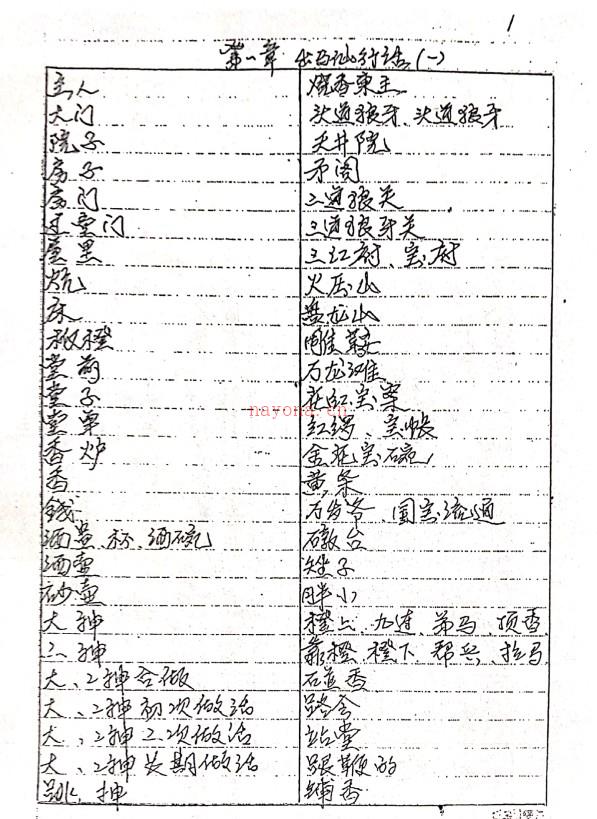 1
第一章 出马仙行话(一)
主人 烧香东主
大门 头道狼牙、头道狼牙
院子 天井院
房子 矛阁
房门 二道狼关
过堂门 三道狼牙关
屋里 三江府、宝府
炕 火店山
床 盘龙山
板橙 雕鞍
堂前 万龙滩
堂子 花红宝案
堂单 红绸、宝帐
香炉 金花宝碗
香 黄条
錢 国宝流通
酒盅、杯、酒碗 台
酒壶 矬子
砂壶 胖小
大神 橙上、弟马、顶香
二神 靠橙、橙下、帮兵、拉马
大、二神合做
大、二神初次做活 踏舍
大、二神二次做活 站堂
大、二神长期做活 跟鞭的
跳神 铺香
nayona.cn